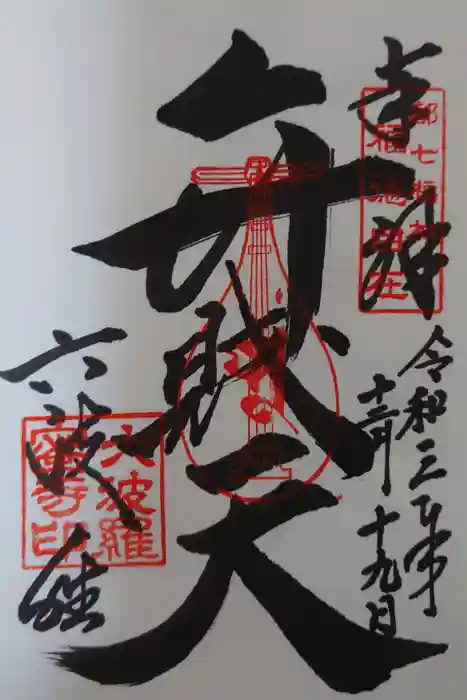 奉拝
都七福神
福徳自在
令和三年
十二月十九日
弁財天
六波羅蜜寺印
六波羅